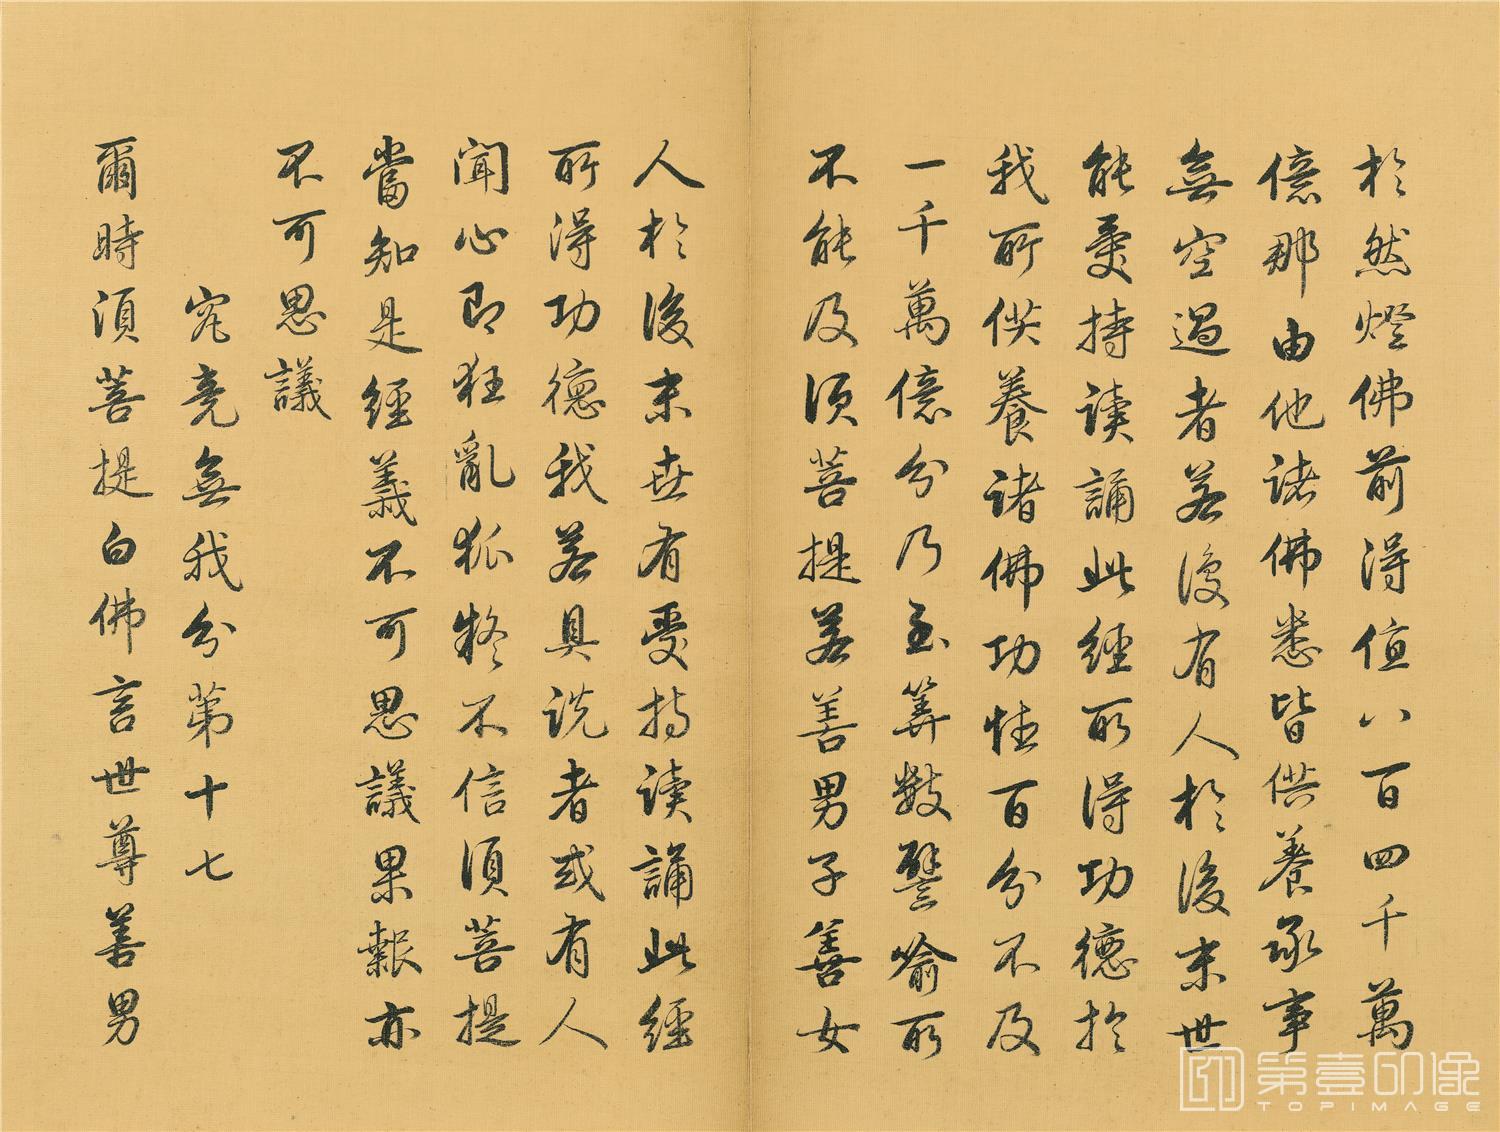 於然燈佛前得值八百四千萬
億那由他諸佛悉皆供養承事
無空過者若復有人於後末世
能受持讀誦此經所得功德於
我所供養諸佛功德百分不及
一千萬億分乃至算數譬喻所
不能及須菩提若善男子善女
人於後末世有受持讀誦此經
所得功德我若具說者或有人
聞心即狂亂狐疑不信須菩提
當知是經義不可思議果報亦
不可思議
究竟無我分第十七
爾時須菩提白佛言世尊善男
第壹印像
TOPIMAGE